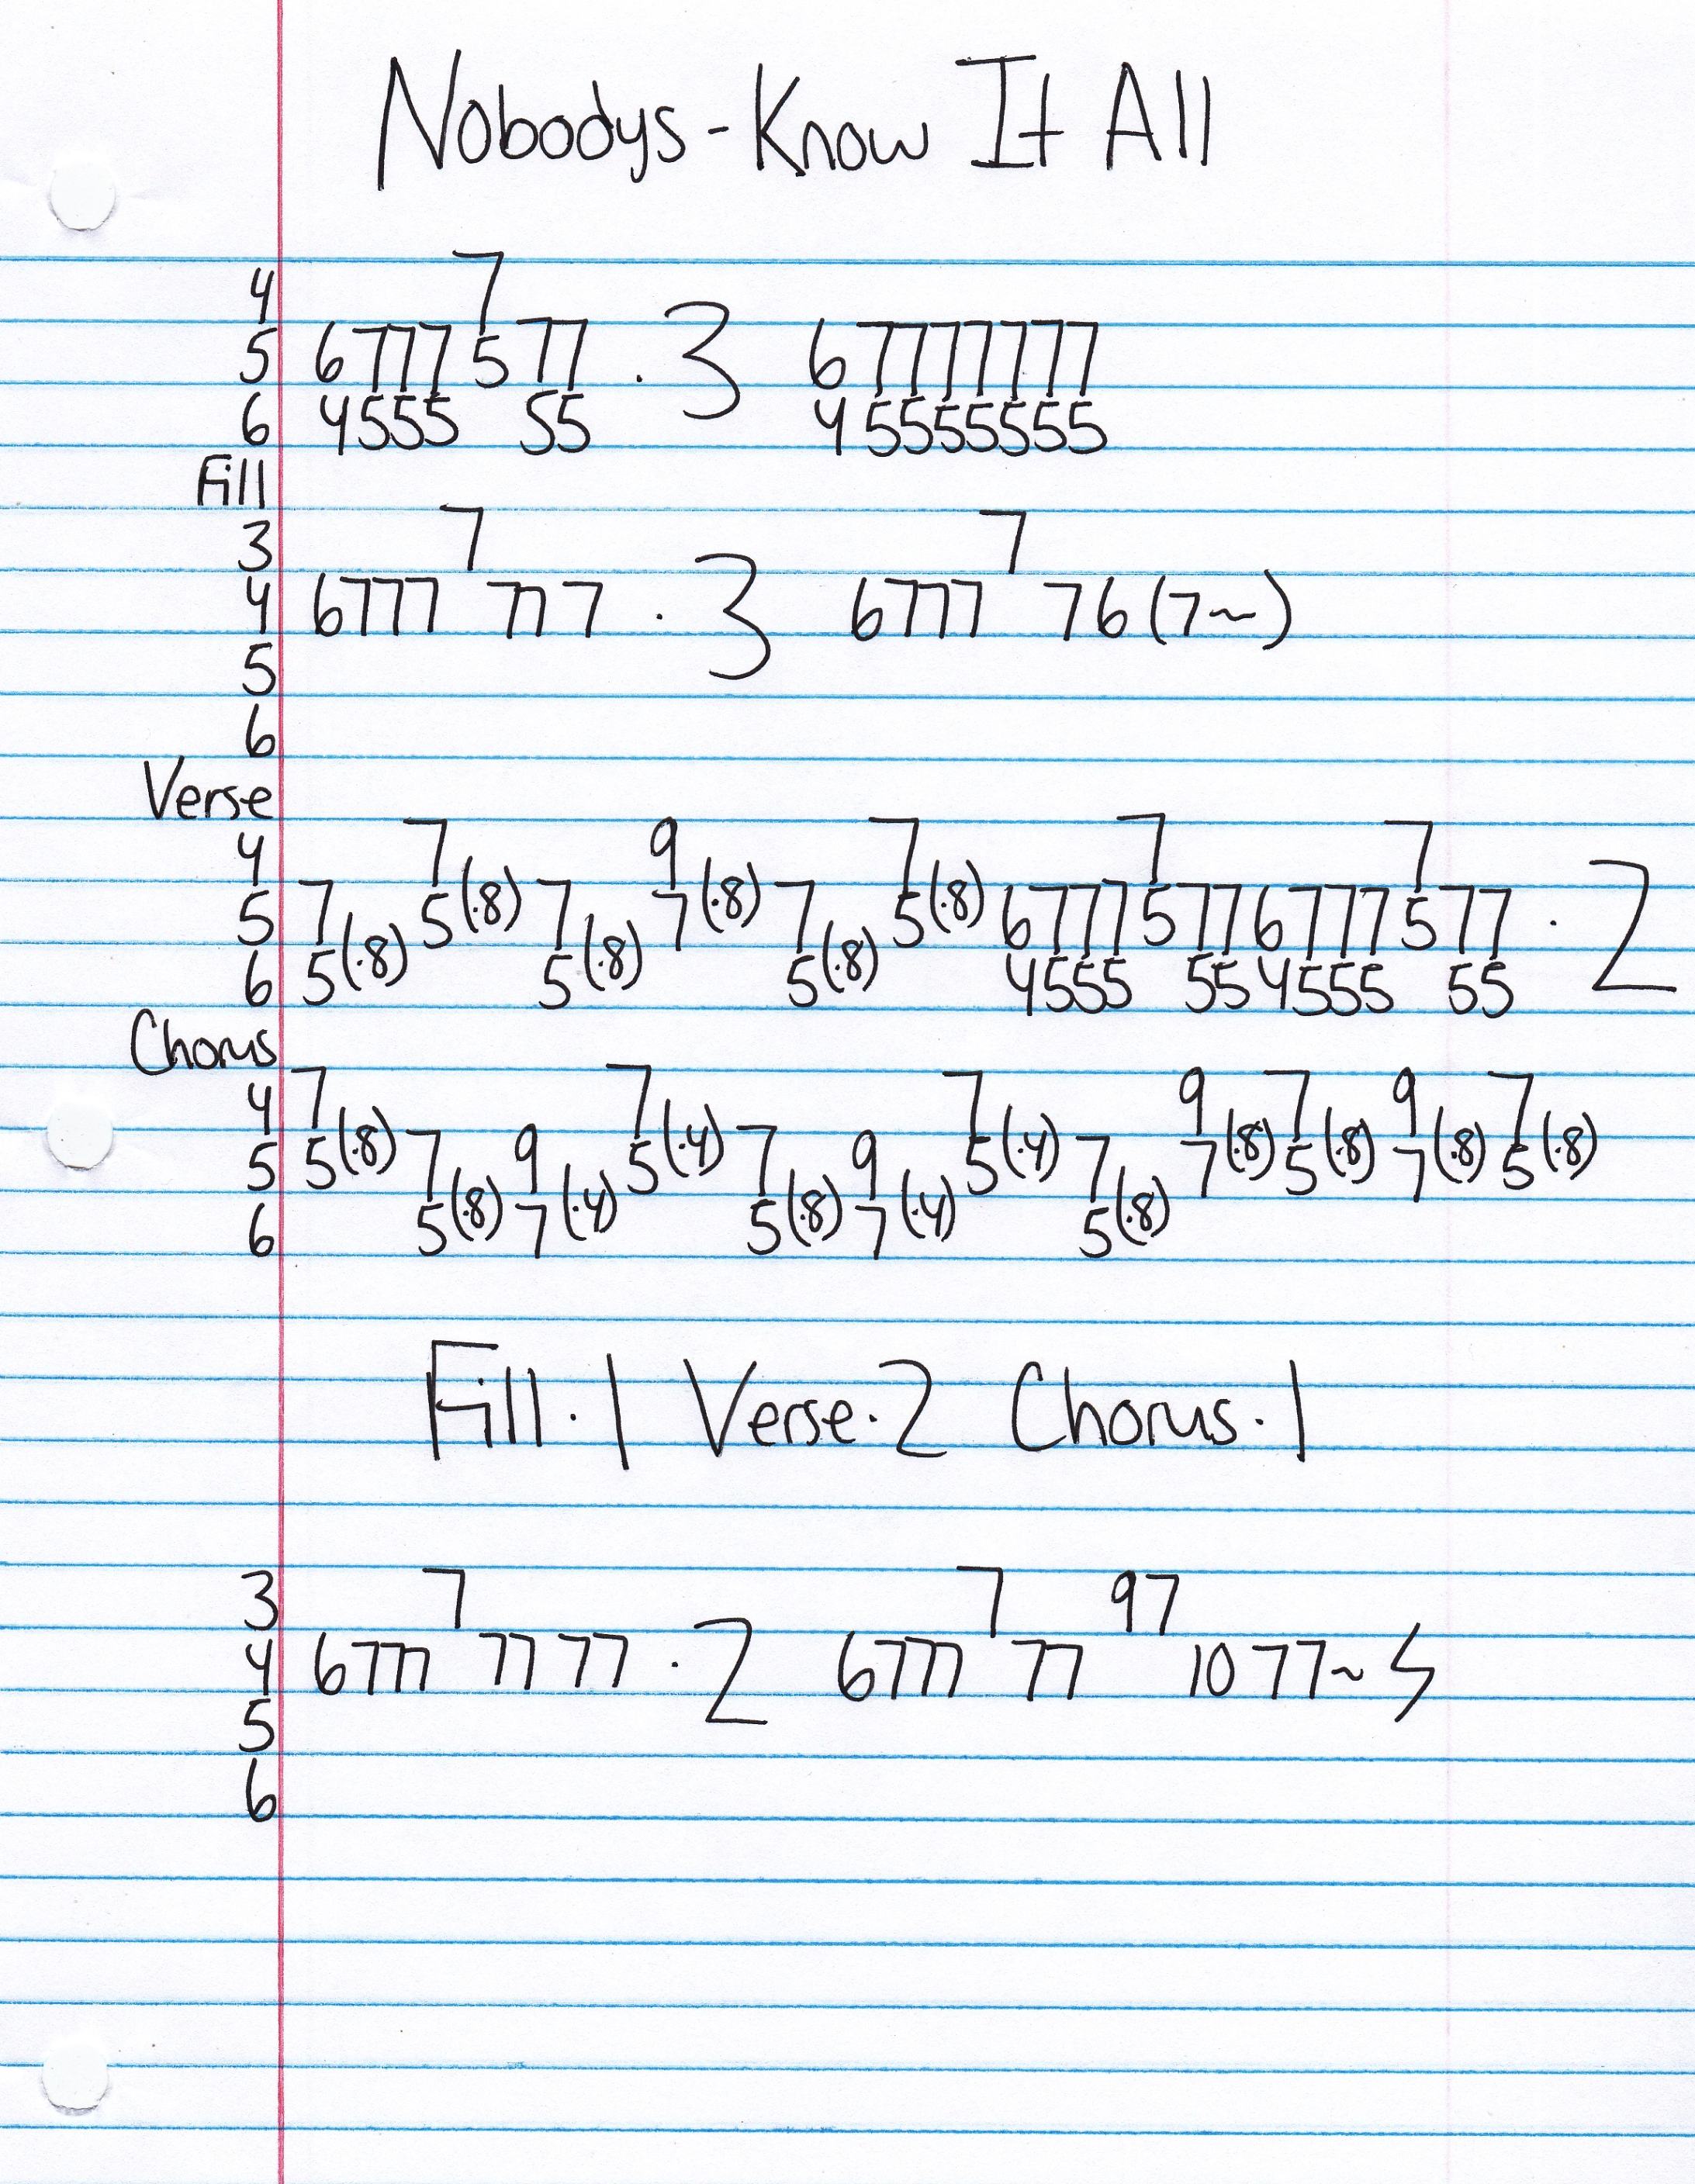 Nobodys - Know It All
4 7
5 6777577 . 3 67777777
6 4555 55 45555555
Fill
3 7 7
4 6777 777 . 3 6777 76(7~)
5
6
Verse
4 7 9 7 7 7
5 7 5(.8) 7 7(.8) 7 5(.8) 6777577 6777577 . 2
6 5(.8) 5(.8) 5(.8) 4555 55 4555 55
Chorus
4 7 7 7 9 7 9 7
5 5(.8) 7 9 5(.4) 7 9 5(.4) 7 7(.8) 5(.8) 7(.8) 5(.8)
6 5(.8) 7(.4) 5(.8) 7(.4) 5(.8)
Fill . 1 Verse . 2 Chorus . 1
3 7 7 97
4 6777 7777 . 2 6777 77 1077~
5
6